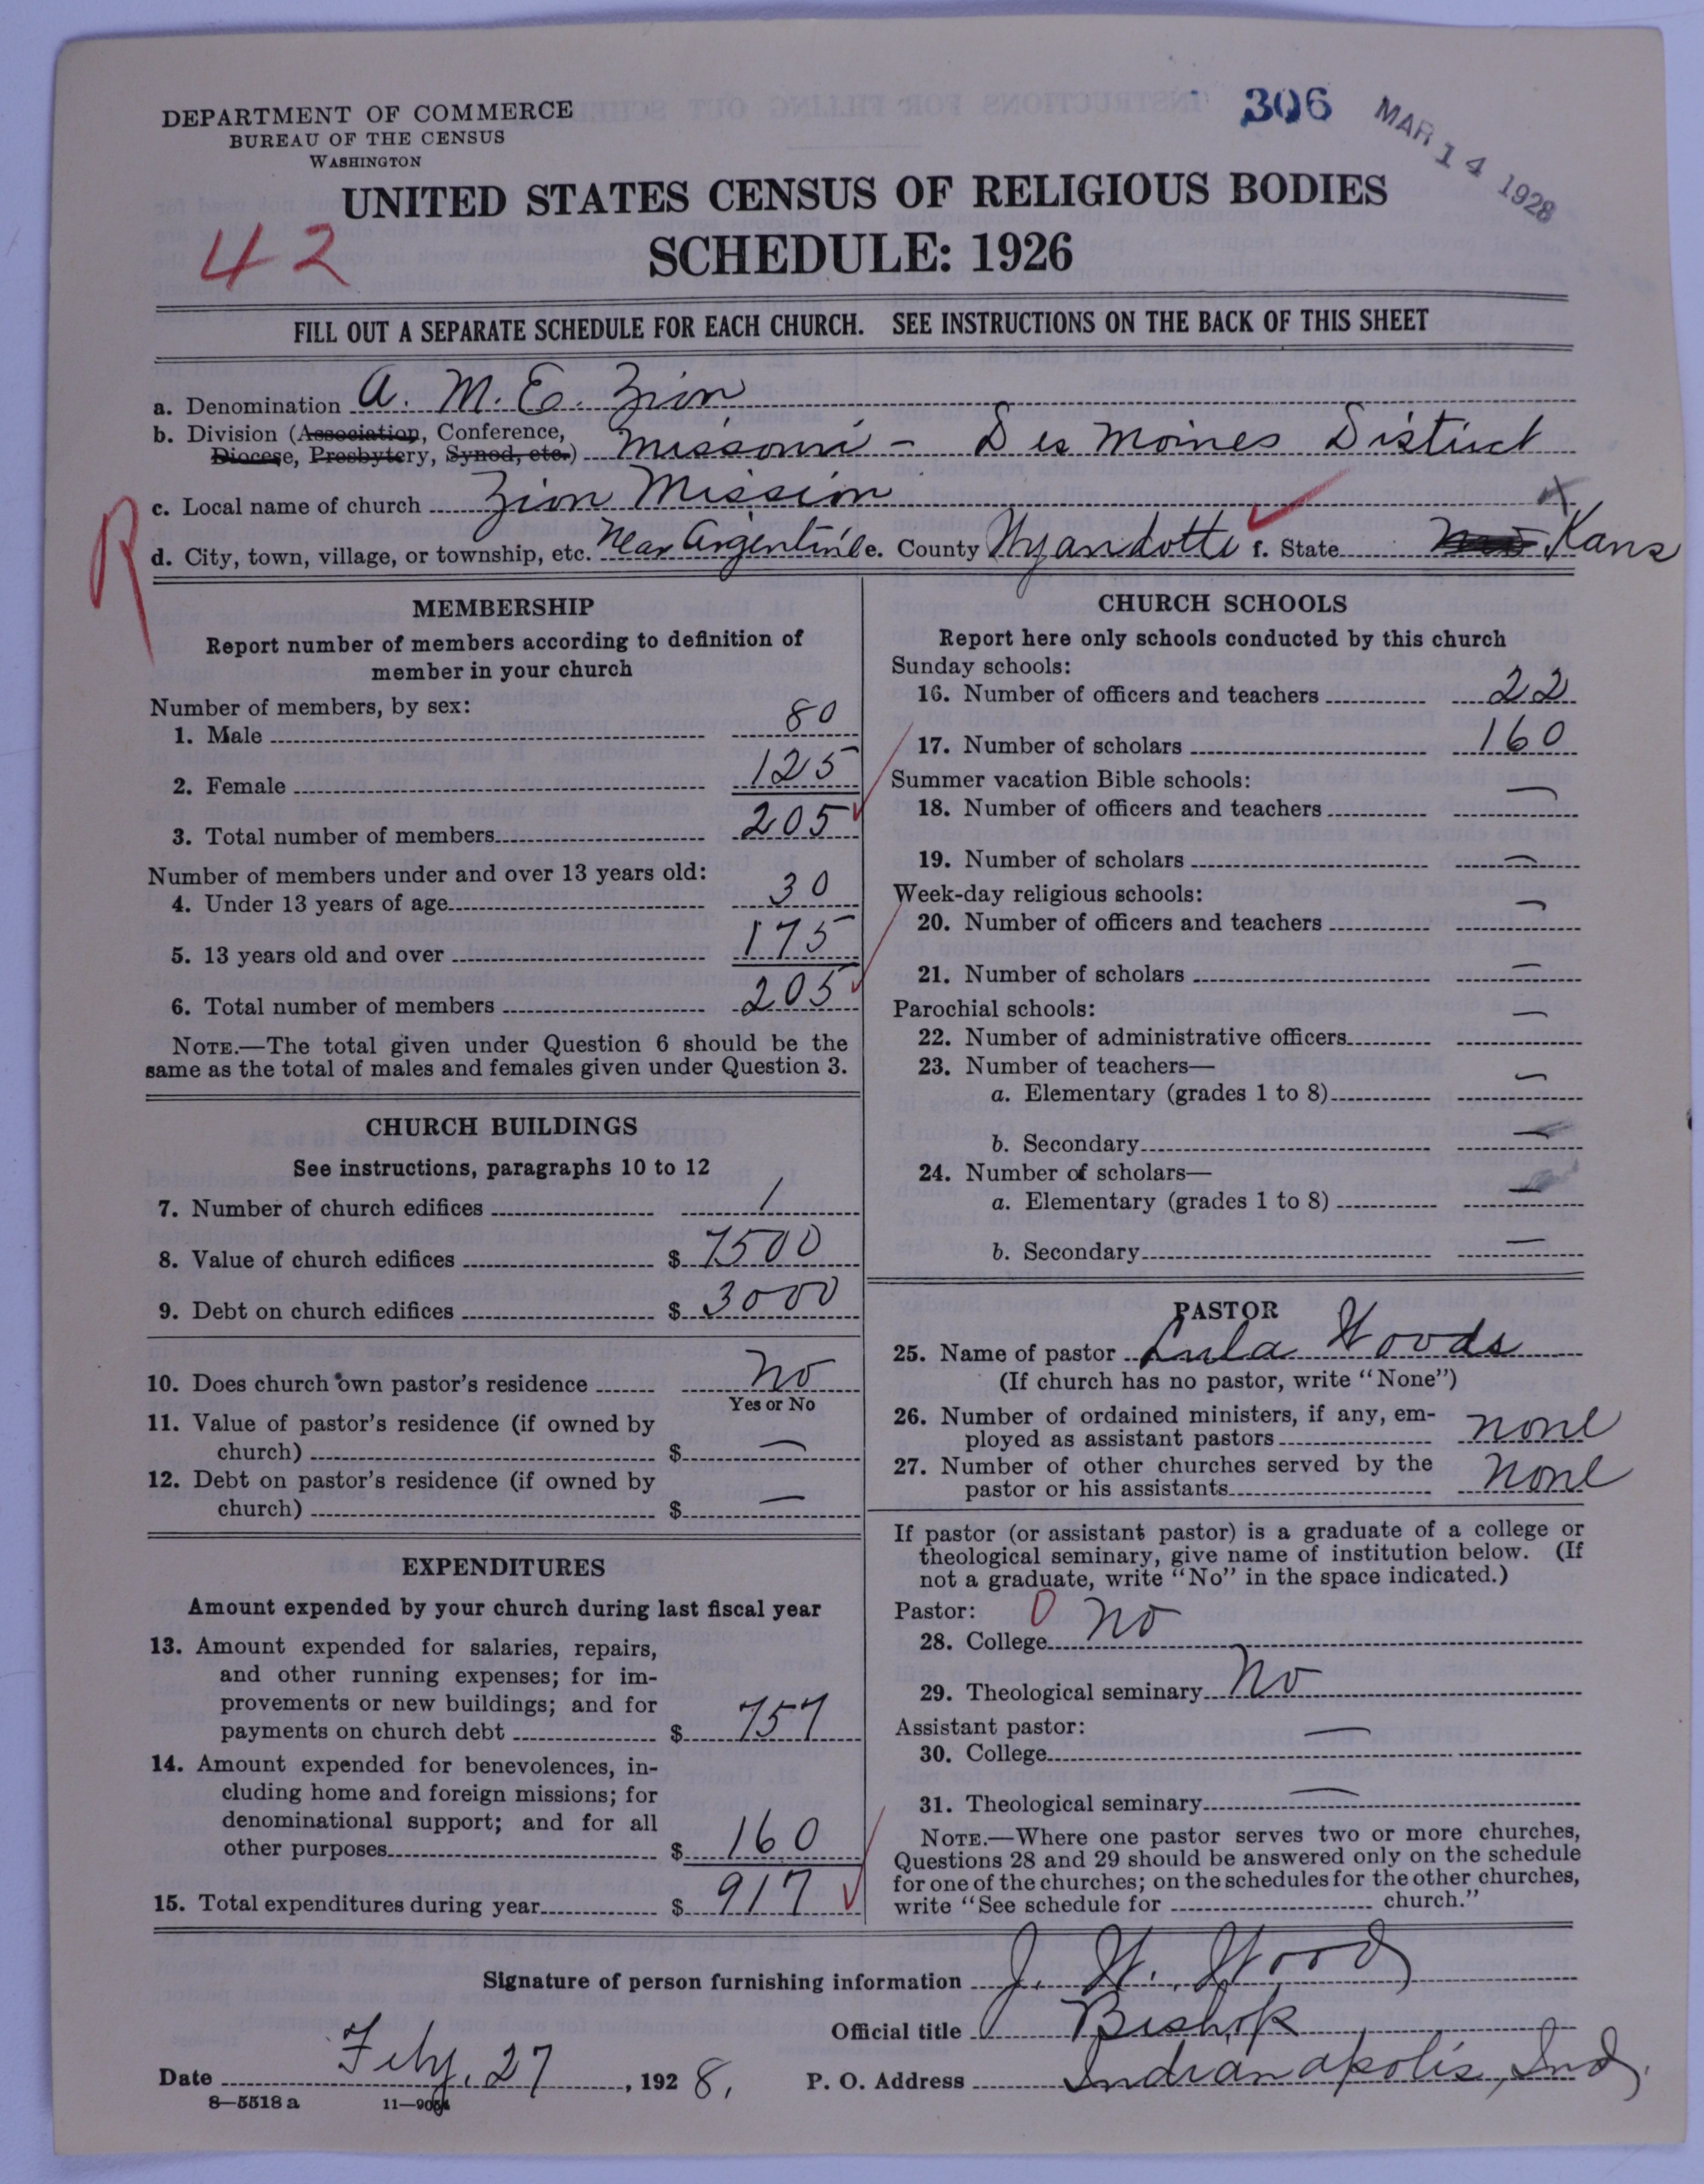 306 MAR 14 1928
DEPARTMENT OF COMMERCE
BUREAU OF THE CENSUS
WASHINGTON
UNITED STATES CENSUS OF RELIGIOUS BODIES
42
SCHEDULE: 1926
FILL OUT A SEPARATE SCHEDULE FOR EACH CHURCH. SEE INSTRUCTIONS ON THE BACK OF THIS SHEET
a. Denomination A. M. E. Zion
b. Division (Association, Conference,
Diocese, Presbytery, Synod, etc.) Missouri - Des Moines District
c. Local name of church Zion Mission
R
d. City, town, village, or township, etc. Near Argentine e. County Wyandotte f. State Kans
MEMBERSHIP
Report number of members according to definition of
member in your church
Number of members, by sex:
1. Male 80
2. Female 125
3. Total number of members 205
Number of members under and over 13 years old:
4. Under 13 years of age 30
5. 13 years old and over 175
6. Total number of members 205
NOTE.—The total given under Question 6 should be the
same as the total of males and females given under Question 3.
CHURCH BUILDINGS
See instructions, paragraphs 10 to 12
7. Number of church edifices 1
8. Value of church edifices $ 7500
9. Debt on church edifices $ 3000
10. Does church own pastor's residence No
Yes or No
11. Value of pastor's residence (if owned by
church) $ —
12. Debt on pastor's residence (if owned by
church) $ —
EXPENDITURES
Amount expended by your church during last fiscal year
13. Amount expended for salaries, repairs,
and other running expenses; for im-
provements or new buildings; and for
payments on church debt $ 757
14. Amount expended for benevolences, in-
cluding home and foreign missions; for
denominational support; and for all
other purposes $ 160
15. Total expenditures during year $ 917
CHURCH SCHOOLS
Report here only schools conducted by this church
Sunday schools:
16. Number of officers and teachers 22
17. Number of scholars 160
Summer vacation Bible schools:
18. Number of officers and teachers —
19. Number of scholars —
Week-day religious schools:
20. Number of officers and teachers —
21. Number of scholars —
Parochial schools:
22. Number of administrative officers —
23. Number of teachers—
a. Elementary (grades 1 to 8) —
b. Secondary —
24. Number of scholars—
a. Elementary (grades 1 to 8) —
b. Secondary —
PASTOR
25. Name of pastor Lula Woods
(If church has no pastor, write "None")
26. Number of ordained ministers, if any, em-
ployed as assistant pastors none
27. Number of other churches served by the
pastor or his assistants none
If pastor (or assistant pastor) is a graduate of a college or
theological seminary, give name of institution below. (If
not a graduate, write "No" in the space indicated.)
Pastor: 0
28. College No
29. Theological seminary No
Assistant pastor:
30. College —
31. Theological seminary —
NOTE.—Where one pastor serves two or more churches,
Questions 28 and 29 should be answered only on the schedule
for one of the churches; on the schedules for the other churches,
write "See schedule for church."
Signature of person furnishing information J. W. Wood
Official title Bishop
Date Feby. 27, 1928. P. O. Address Indianapolis, Ind.
8—5518 a 11—9054